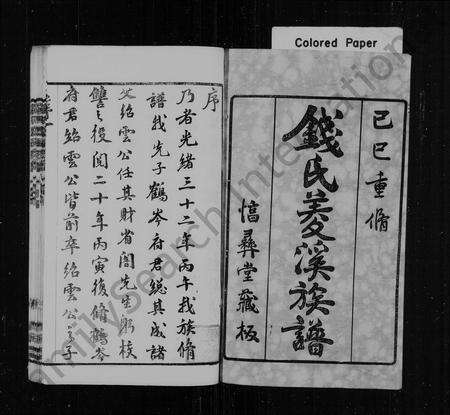 Colored Paper
己巳重脩
錢氏菱溪族譜
惇彝堂藏板
序
乃者光緒三十二年丙午我族脩
譜我先子鶴岑府君總其成諸
父紹雲公任其財省闇先生躬校
讐之役閱二十年丙寅復脩鶴岑
府君紹雲公皆前卒紹雲公子
FamilySearch International